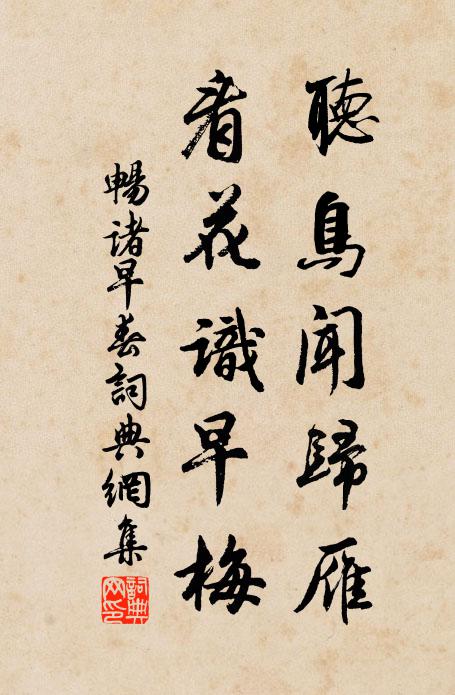 聽鳥聞歸雁
看花識早梅
暢諸早春詞典網集
詞典網印